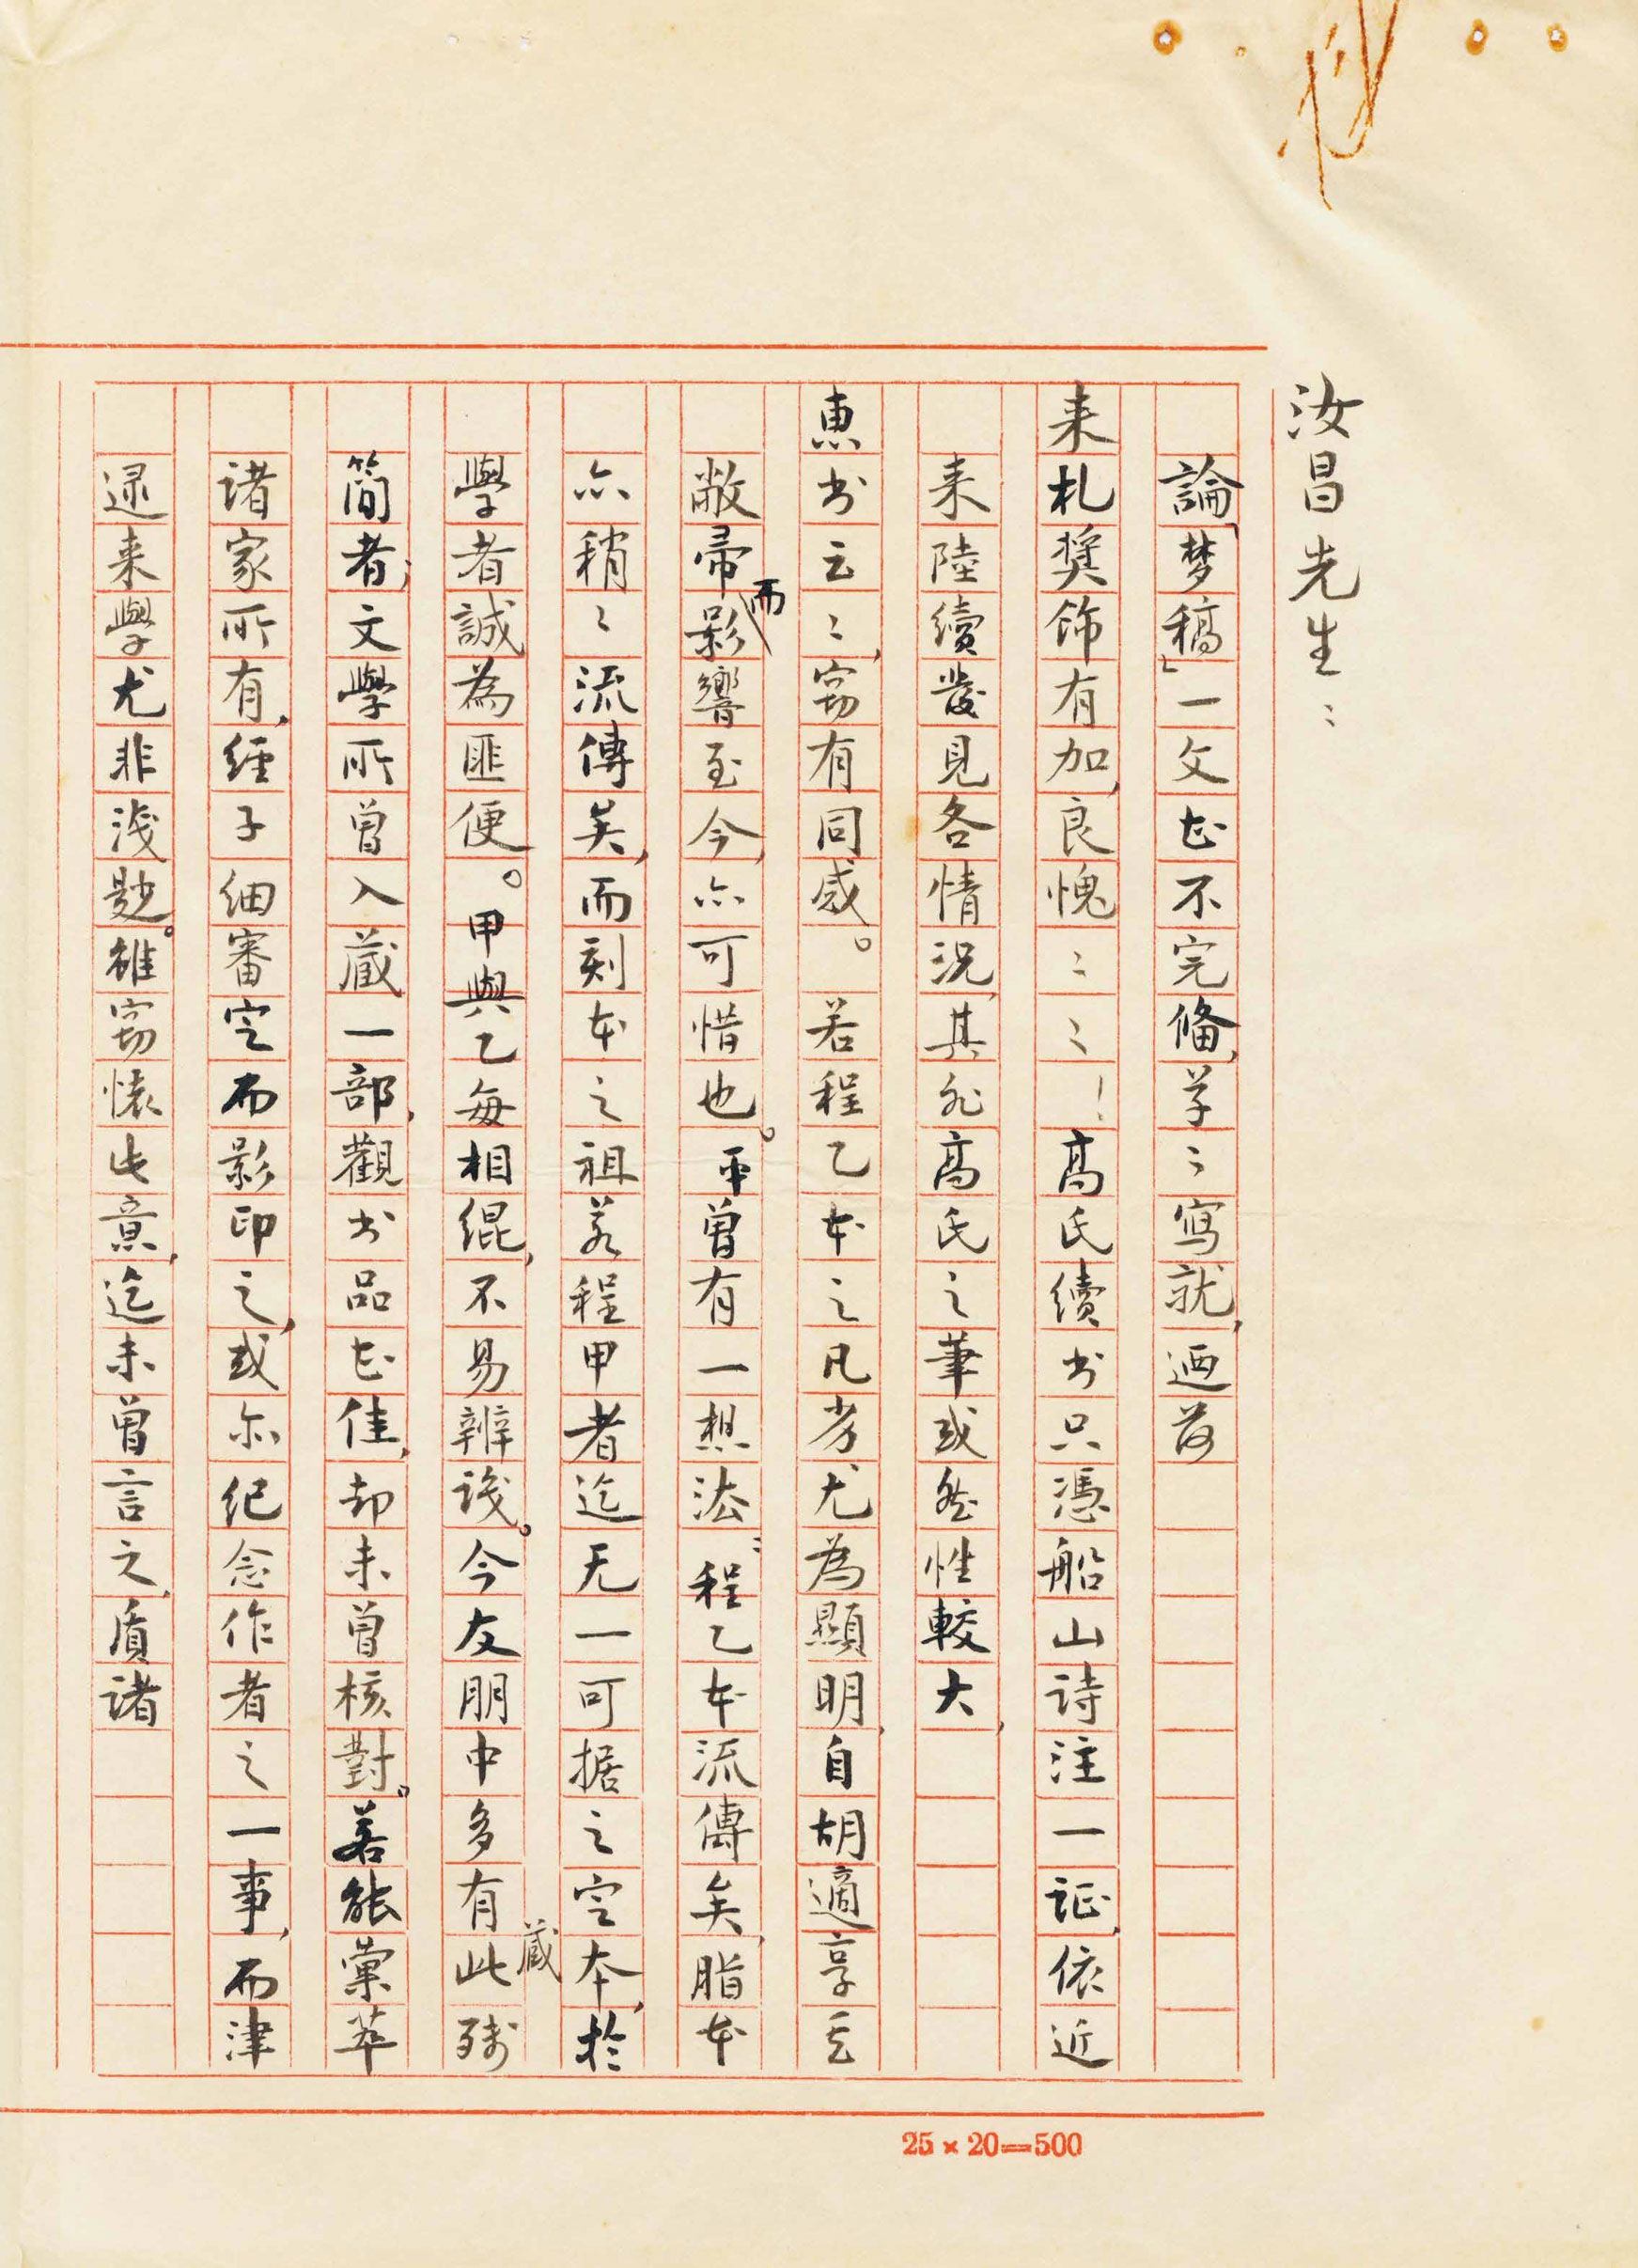 汝昌先生：
論「梦稿」一文甚不完備，草〻寫就，迺荷
来札奨饰有加，良愧〻〻！高氏续书只憑船山诗注一证，依近
来陸續發見各情況，其非高氏之筆或然性較大，
惠书云〻，窃有同感。若程乙本之凡劣尤為顯明，自胡適享以
敝帚，而影響至今，亦可惜也。平曾有一想法：程乙本流傳矣，脂本
亦稍〻流傳矣，而刻本之祖若程甲者迄无一可据之定本，於
學者誠為匪便。甲與乙每相緄，不易辨識。今友朋中多有藏此残
简者；文學所曾入藏一部，觀书品甚佳，却未曾核對。若能彙萃
诸家所有，經子细審定而影印之，或亦纪念作者之一事，而津
逮来學尤非淺尠。雖窃懷此意，迄未曾言之，质诸
25×20=500